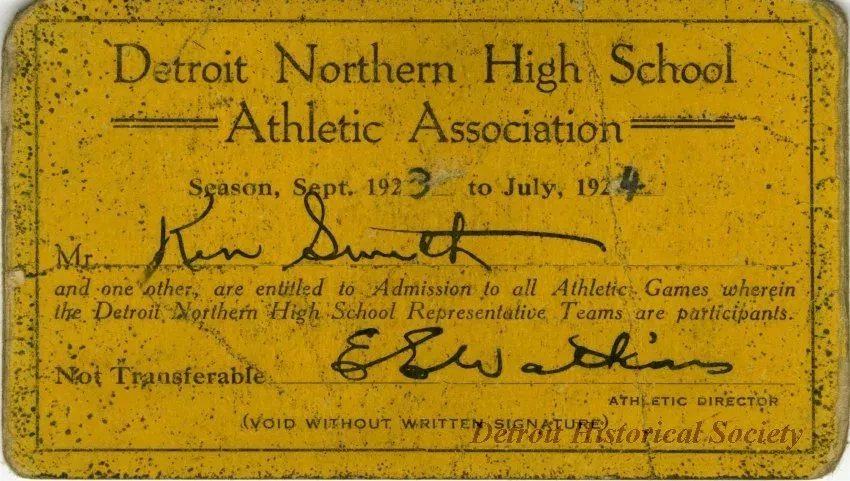 Detroit Northern High School
Athletic Association
Season, Sept. 1923 to July, 1924
Mr. Ken Smith
and one other, are entitled to Admission to all Athletic Games wherein
the Detroit Northern High School Representative Teams are participants.
Not Transferable E E Watkins
ATHLETIC DIRECTOR
(VOID WITHOUT WRITTEN SIGNATURE)
Detroit Historical Society